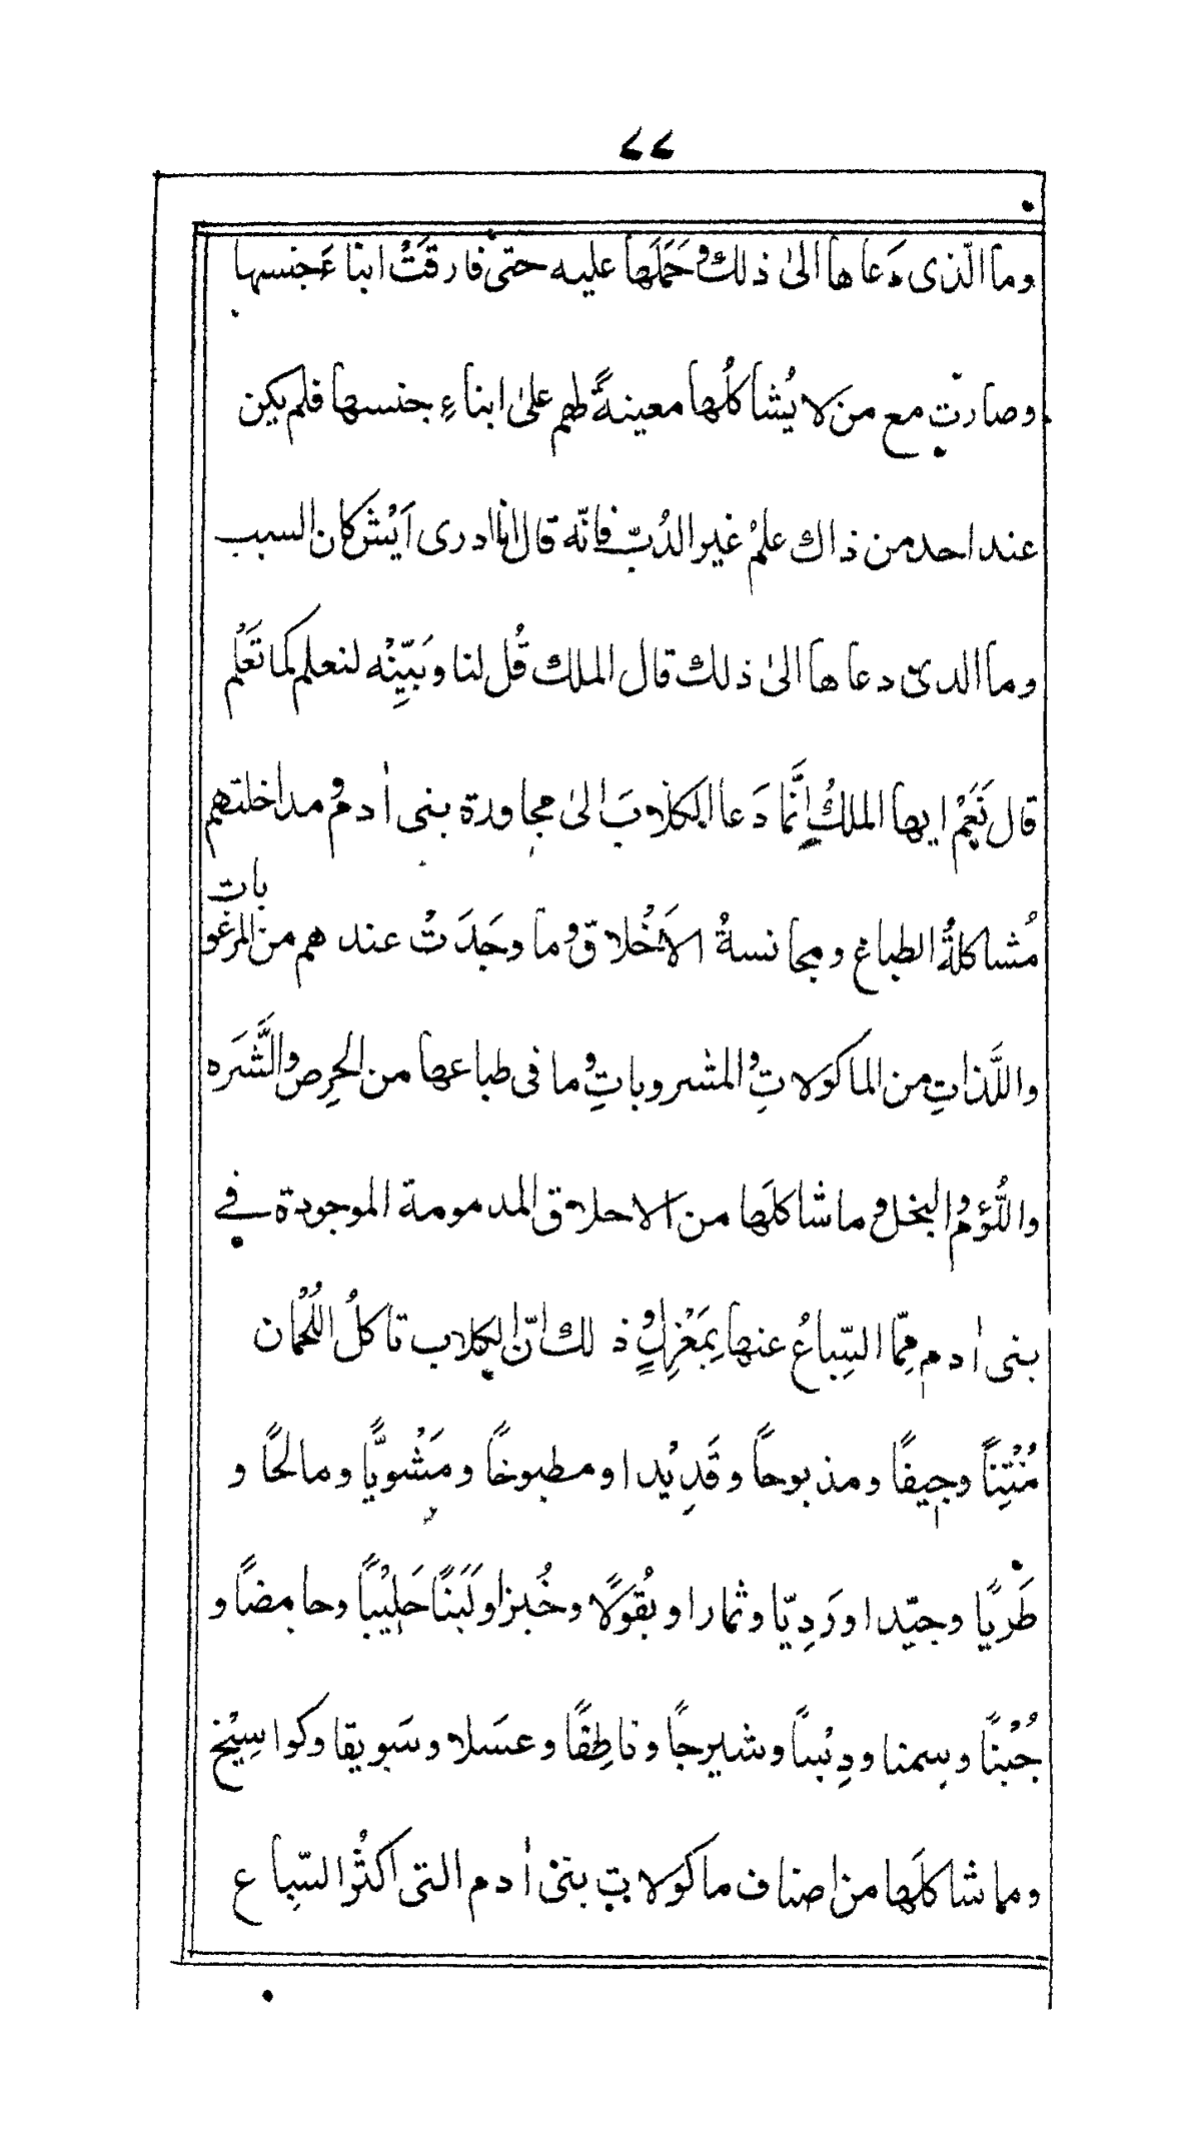 ٤٤
وما الّذى دَعا ها الىٰ ذلك وحَمَلَها عليه حتىٰ فا رقَتْ ابنا ءَ جنسها
وصارت مع من لا يُشاكلُها معينةً لهم علىٰ ابناءِ جنسها فلم يكن
عند احد من ذاك علمٌ غير الدُبّ فانّه قال انا ادرى اَيْش كان السبب
وما الدىّ دعا ها الىٰ ذلك قال الملك قُل لنا وبَيِّنْه لنعلم كما تَعْلم
قال نَعَمْ ايها الملكُ اِنَّما دَعا الكلابَ الىٰ مجاورة بنى اٰدم ومداخلتهم
مُشاكلةُ الطباع ومجانسةُ الاَخْلاق وما وجَدَتْ عند هم من المرغو
بات
واللَّذاتِ من الماكولاتِ والمشروباتِ وما فى طباعها من الحِرص والشَّرَه
واللُؤم والبخل وما شاكلَها من الاحلاق المدمومة الموجودة في
بنى اٰدم مِمّا السِّباعُ عنها بِمَعْزِلٍ وذ لك انّ الكلاب تاكلُ اللُحْمان
مُنْتِنًا وجِيفًا ومذبوحاً وقَدِيْدا ومطبوخاً ومَشْويًّا ومالحًا و
طَريًا وجيّدا ورَدِيّا وثمارا وبُقولًا وخُبزا ولَبَنًا حَلِيْبًا وحامضًا و
جُبْنًا وسِمنا ودِبْساً وشيرجًا وناطِفًا وعسَلا وسَويقا وكوا سِيْخ
وما شاكلَها من اصناف ماكولات بنى اٰدم التى اكثُر السِّباع